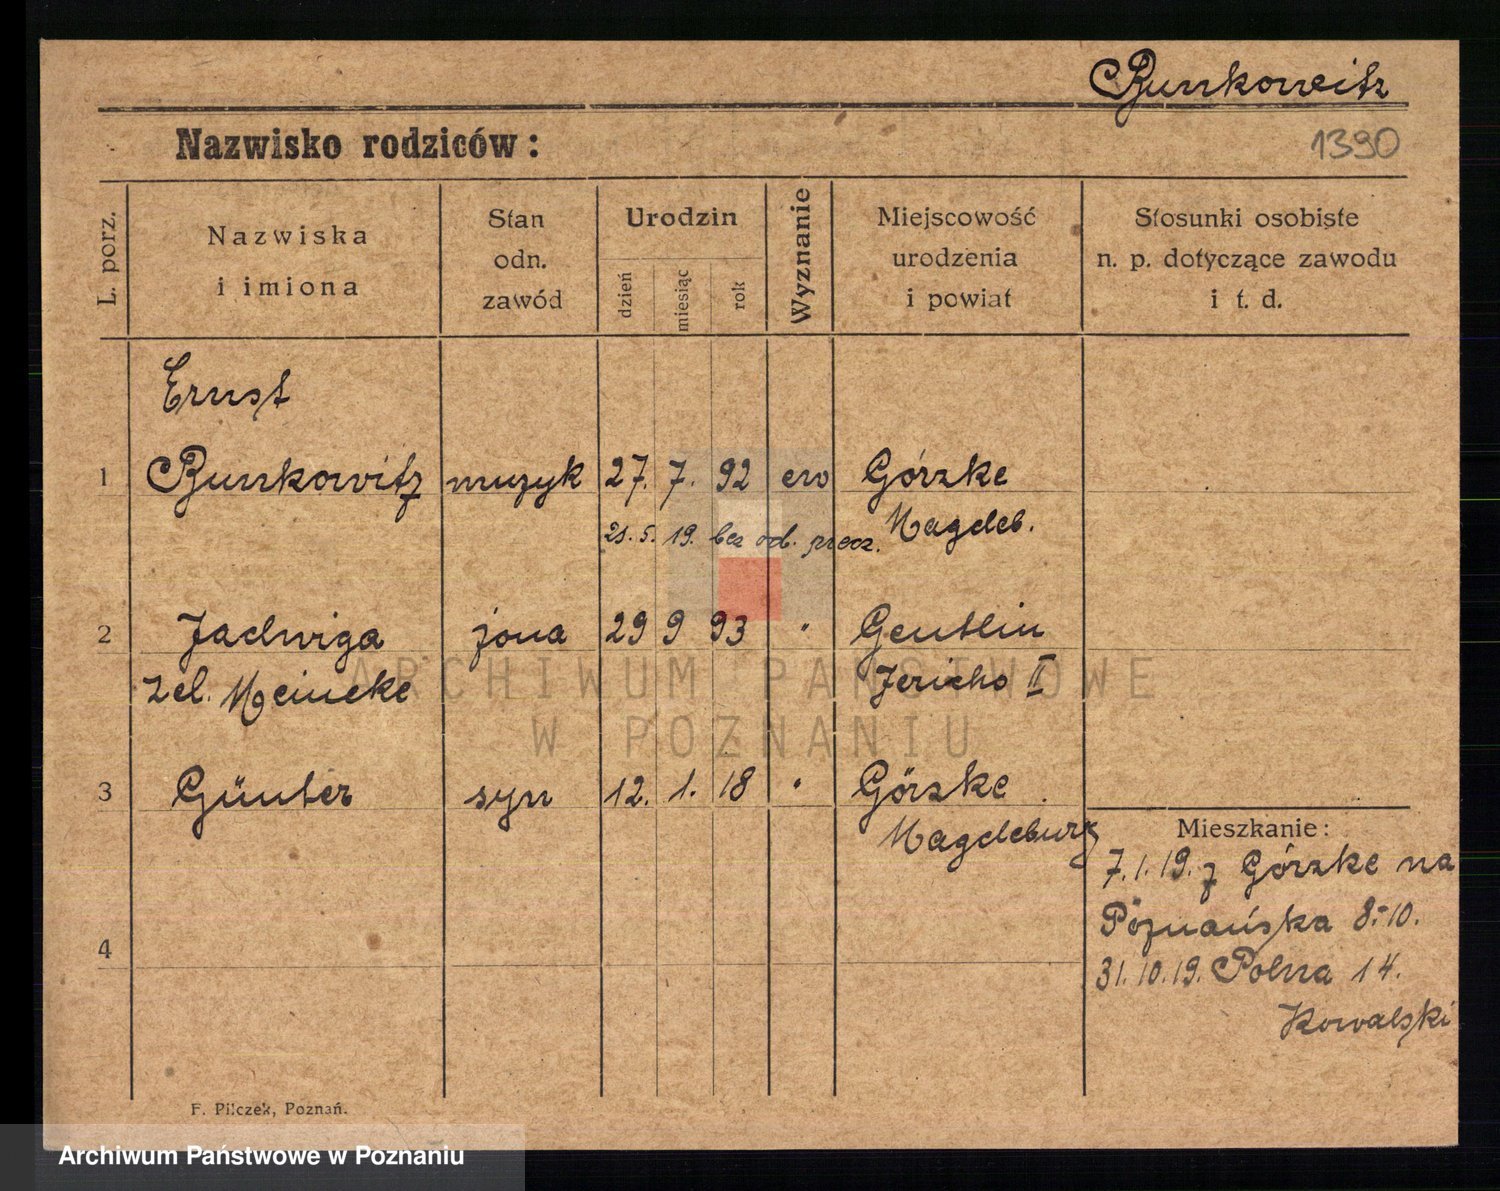 Bunkowitz
Nazwisko rodziców:
1390
L. porz.
Nazwiska
i imiona
Stan
odn.
zawód
Urodzin
dzień
miesiąc
rok
Wyznanie
Miejscowość
urodzenia
i powiat
Stosunki osobiste
n. p. dotyczące zawodu
i t. d.
Ernst
1 Bunkowitz muzyk 27. 7. 92 ew Görzke
Magdeb.
21. 5. 19. bez od.
2 Jadwiga żona 29 9 93 " Genthin
zel. Meineke Jericho II
ARCHIWUM PAŃSTWOWE
W POZNANIU
3 Günter syn 12. 1. 18 " Görzke
Magdeburg
Mieszkanie:
7.1.19. z Görzke na
Poznańska 8-10.
4
31.10.19. Polna 14.
Kowalski
F. Pilczek, Poznań.
Archiwum Państwowe w Poznaniu